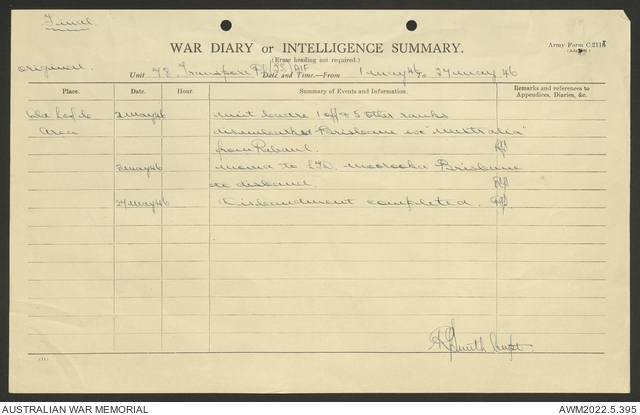 Final
WAR DIARY or INTELLIGENCE SUMMARY.
(Erase heading not required.)
Army Form C.2118
original
Unit 78 Transport Pl AIF Date and Time.—From 1 May 46 To 27 May 46
Place. Date. Hour. Summary of Events and Information. Remarks and references to Appendices, Diaries, &c.
2 May 46 Unit cadre 1 off & 5 other ranks
Area disembarked Brisbane ex "Australia"
from Rabaul.
8 May 46 Moved to Moorooka Brisbane
to disband.
27 May 46 Disbandment completed.
Smith Capt.
AUSTRALIAN WAR MEMORIAL
AWM2022.5.395